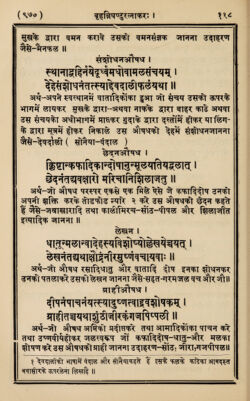 (९७०) बृहन्निघण्टुरत्नाकरः। ११८
मुखके द्वारा वमन करावे उसको वमनसंज्ञक जानना उदाहरण
जैसे-मैनफल॥
संशोधनऔषध।
स्थानाद्बहिर्नयेदूर्ध्वमधोवामलसंचयम्।
देहसंशोधनंतत्स्याद्देवदालीफलंयथा॥
अर्थ-अपने स्थानमें वातादिकोंका हुआ जो संचय उसको ऊपरके
भागमें लायकर मुखके द्वारा-अथवा नाकके द्वारा बाहर काढे अथवा
उस संचयको अधोभागमें प्राप्तकर गुदाके द्वारा दस्तोंमें होकर या लिंग-
के द्वारा मूत्रमें होकर निकाले उस औषधको देहमें संशोधनजानना
जैसे-देवदाली (सोनैया-बंदाल)
छेदनऔषध।
श्लिष्टान्कफादिकान्दोषानुन्मूलयतियद्बलात्।
छेदनंतद्यवक्षारो मरिचानिशिलाजतु॥
अर्थ-जो औषध परस्पर एकसे एक मिले ऐसे जे कफादिदोष उनको
अपनी शक्ति करके तोडफोड न्यारे २ करे उस औषधको छेदन कहते
हैं जैसे-जवाखारादि तथा कालीमिरच-सोंठ-पीपल और शिलाजीत
इत्यादिक जानना॥
लेखन।
धातून्मलान्वादेहस्यविशोष्योल्लेखयेच्चयत्।
लेखनंतद्यथाक्षौद्रंनीरमुष्णंवचायवाः॥
अर्थ-जो औषध रसादिधातु और वातादि दोष इनका शोधनकर
उनको पतलाकरे उसको लेखन जानना जैसे-सहत-गरमजल वच और जौ॥
ग्राहीऔषध।
दीपनंपाचनंयत्स्यादुष्णत्वाद्द्रवशोषकम्।
ग्राहीतच्चयथाशुंठीजीरकंगजपिप्पली॥
अर्थ-जो औषध अग्निको प्रदीप्तकरे तथा आमादिकोंका पाचन करे
तथा उष्णवीर्यहोकर जलस्वरूप जो कफादिदोष-धातु-और मलका
शोषण करे उस औषधको ग्राही जानना उदाहरण-सोंठ; जीरा;गजपीपल॥